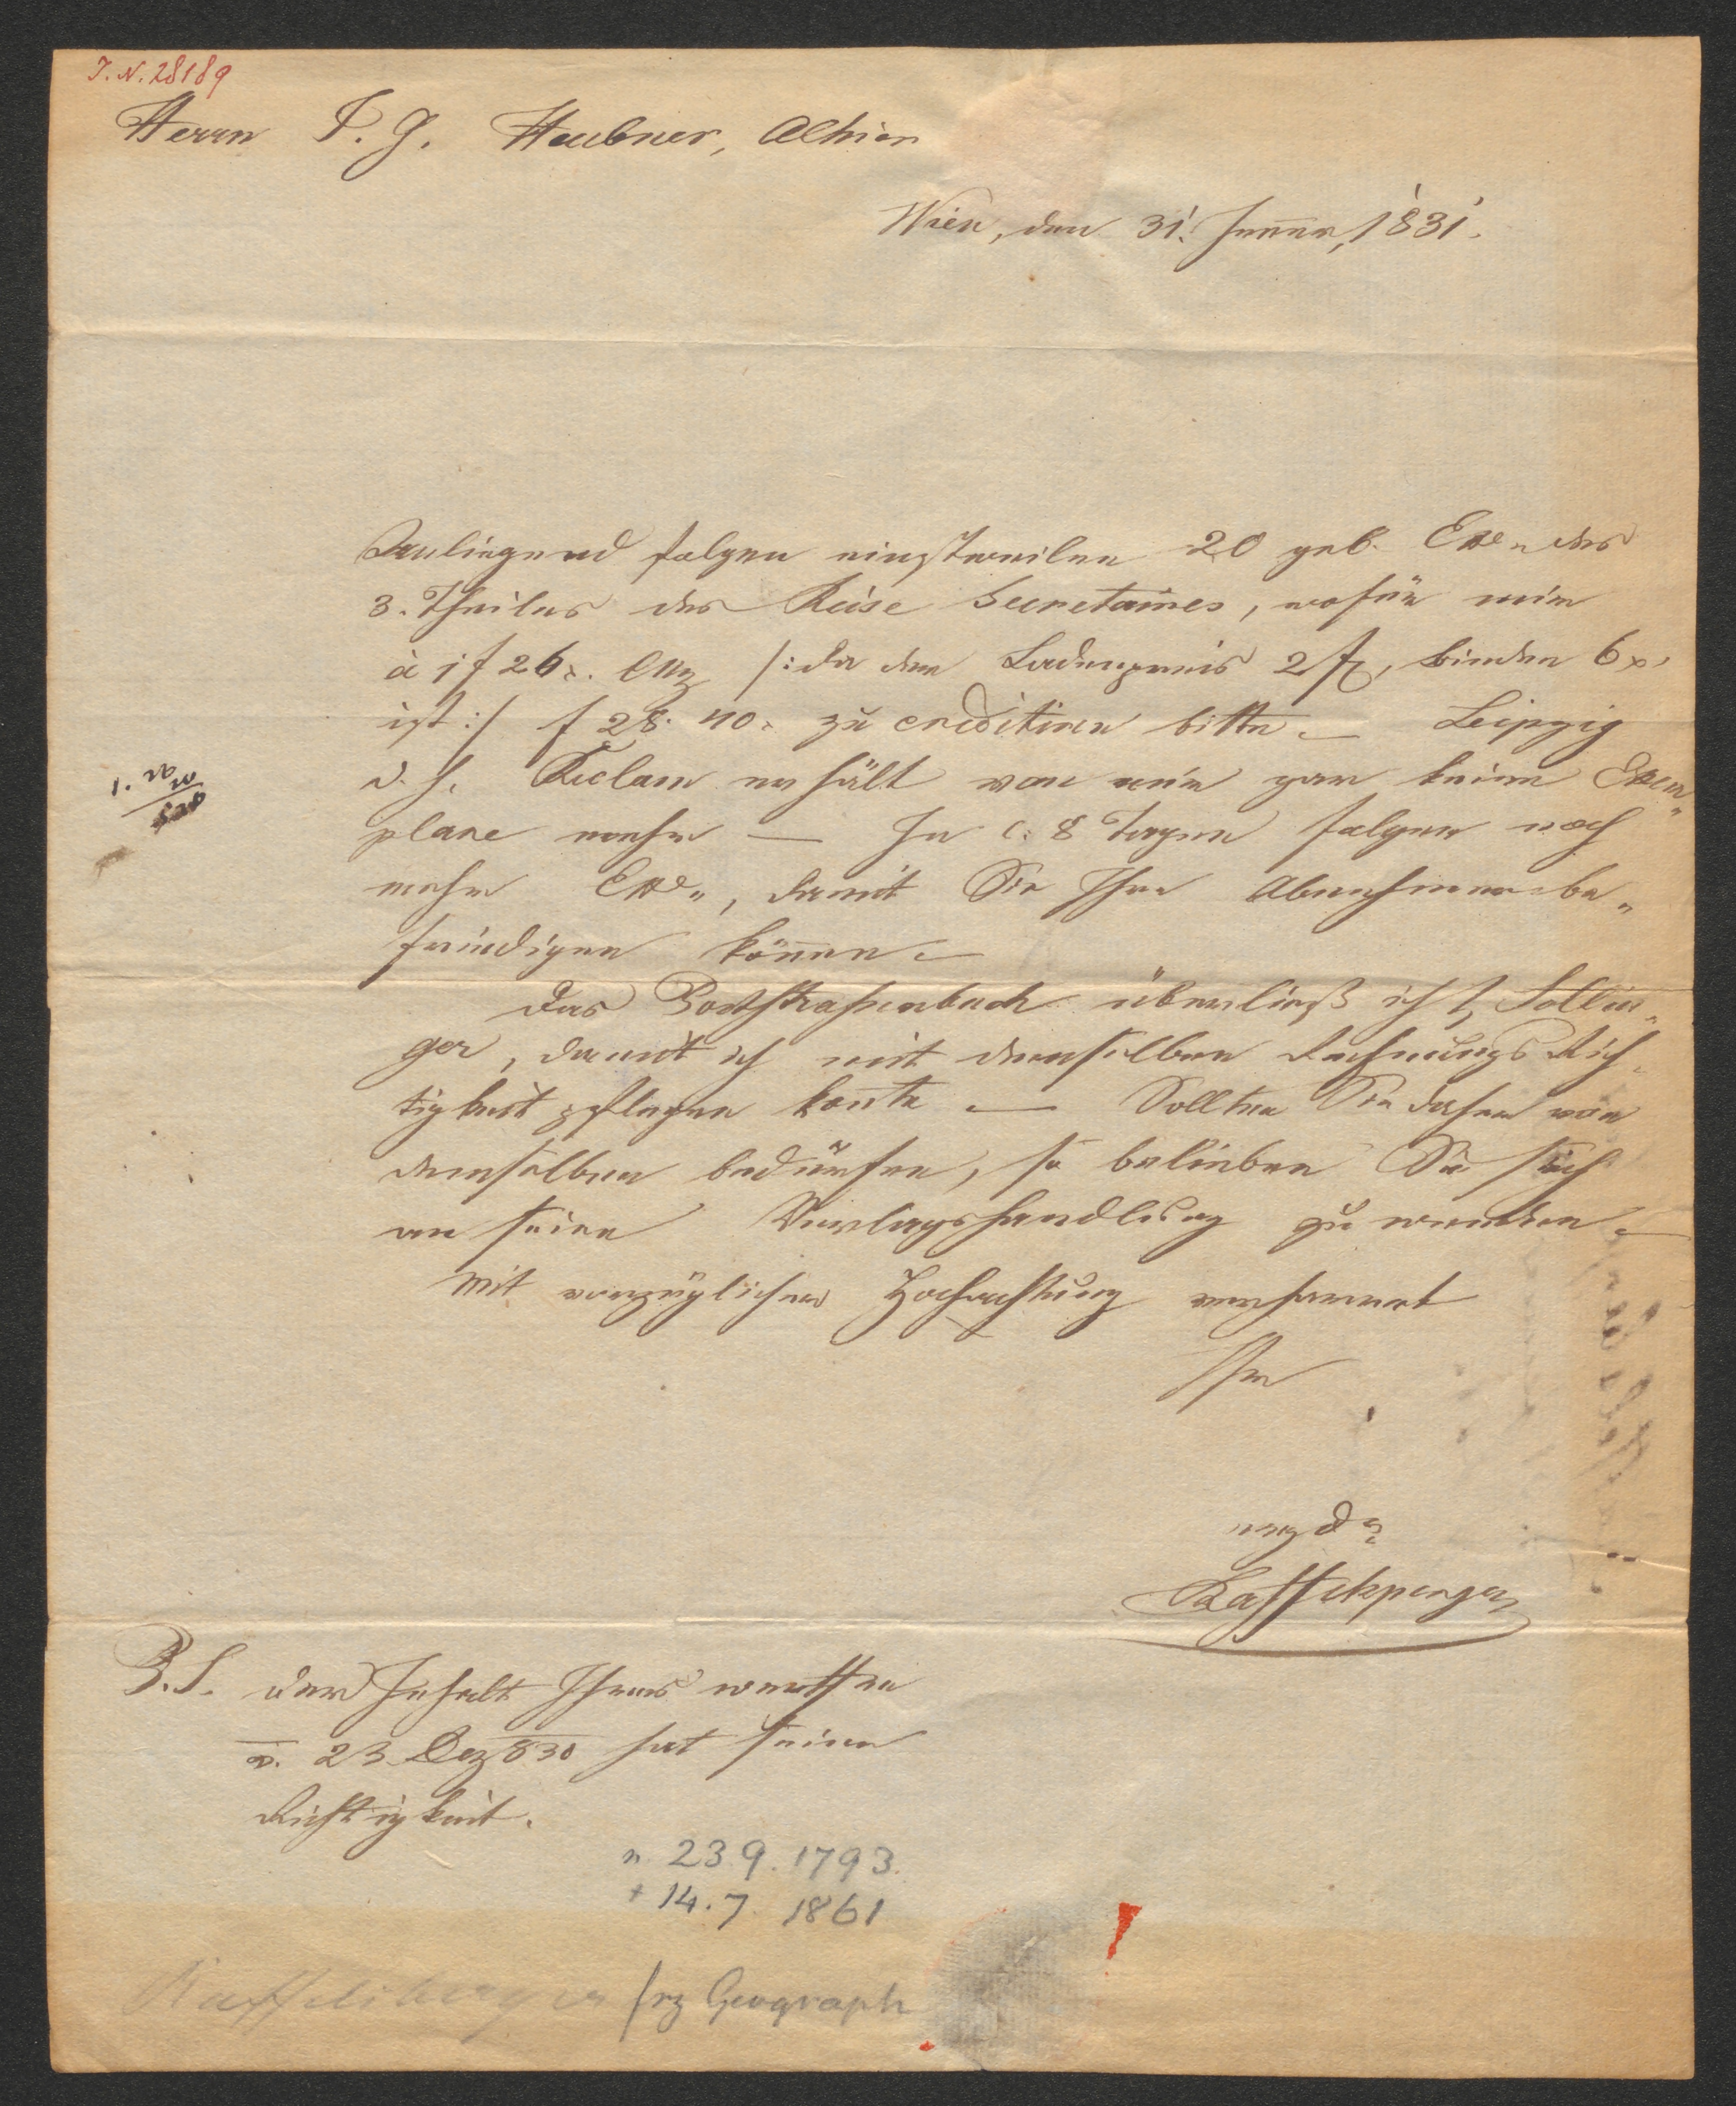 I. N. 28189
Herrn J. G. Heubner, Alhier
Wien, den 31. Jenner, 1831.
Anliegend folgen einstweilen 20 geb. Expl. des
3. Theiles des Reise Secretaires, wofür mir
à 1 f 26 x. CMz /: da der Ladenpreis 2 f, binden 6 x
ist :/ f 28. 40 x zu creditiren bitte. — Leipzig
d. h. Reclam erhält von mir gar keine Exem„
plare mehr — In c. 8 Tagen folgen noch
mehr Expl., damit Sie Ihre Abnehmer be„
friedigen können. —
1. 26
20
520
Das Poststraßenbuch überließ ich H. Sollin„
ger, damit ich mit demselben Rechnungs Rich„
tigkeit pflegen konte — Sollten Sie daher von
demselben bedürfen, so belieben Sie sich
an seine Verlagshandlung zu wenden. —
Mit vorzüglicher Hochachtung verharret
Ihr
Raffelsperger
P.S. Der Inhalt Ihres werthen
v. 23 Dez 830 hat seine
Richtigkeit.
n. 23. 9. 1793.
+ 14. 7. 1861
Raffelsberger frz Geograph